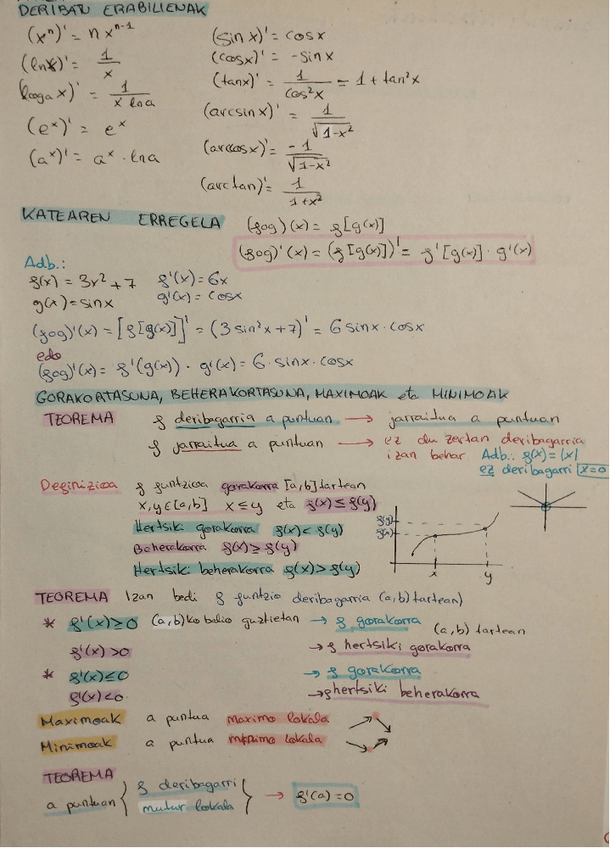 DERIBATU ERABILIENAK
(xⁿ)' = n xⁿ⁻¹
(lnx)' = 1/x
(loga x)' = 1/(x lna)
(eˣ)' = eˣ
(aˣ)' = aˣ · lna
(sin x)' = cosx
(cosx)' = -sinx
(tanx)' = 1/cos²x = 1 + tan²x
(arcsinx)' = 1/√(1-x²)
(arccosx)' = -1/√(1-x²)
(arctan)' = 1/(1+x²)
KATEAREN ERREGELA
(fog)(x) = f[g(x)]
(fog)'(x) = (f[g(x)])' = f'[g(x)] · g'(x)
Adb.:
f(x) = 3x² + 7 f'(x) = 6x
g(x) = sinx g'(x) = cosx
(fog)'(x) = [f[g(x)]]' = (3 sin²x + 7)' = 6 sinx · cosx
edo
(fog)'(x) = f'(g(x)) · g'(x) = 6 · sinx · cosx
GORAKORTASUNA, BEHERAKORTASUNA, MAXIMOAK eta MINIMOAK
TEOREMA f deribagarria a puntuan → jarraitua a puntuan
f jarraitua a puntuan → ez du zertan deribagarria
izan behar Adb.: f(x) = |x|
ez deribagarri x=0
Definizioa f funtzioa gorakorra [a,b] tartean
x,y ∈ [a,b] x ≤ y eta f(x) ≤ f(y)
Hertsiki gorakorra f(x) < f(y)
Beherakorra f(x) ≥ f(y)
Hertsiki beherakorra f(x) > f(y)
f(y)
f(x)
x y
TEOREMA Izan bedi f funtzio deribagarria (a,b) tartean)
* f'(x) ≥ 0 (a,b)ko balio guztietan → f gorakorra (a,b) tartean
f'(x) > 0 → f hertsiki gorakorra
* f'(x) ≤ 0 → f gorakorra
f'(x) < 0 → f hertsiki beherakorra
Maximoak a puntua maximo lokala
Minimoak a puntua minimo lokala
TEOREMA
a puntuan { f deribagarri
mutur lokala } → f'(a) = 0